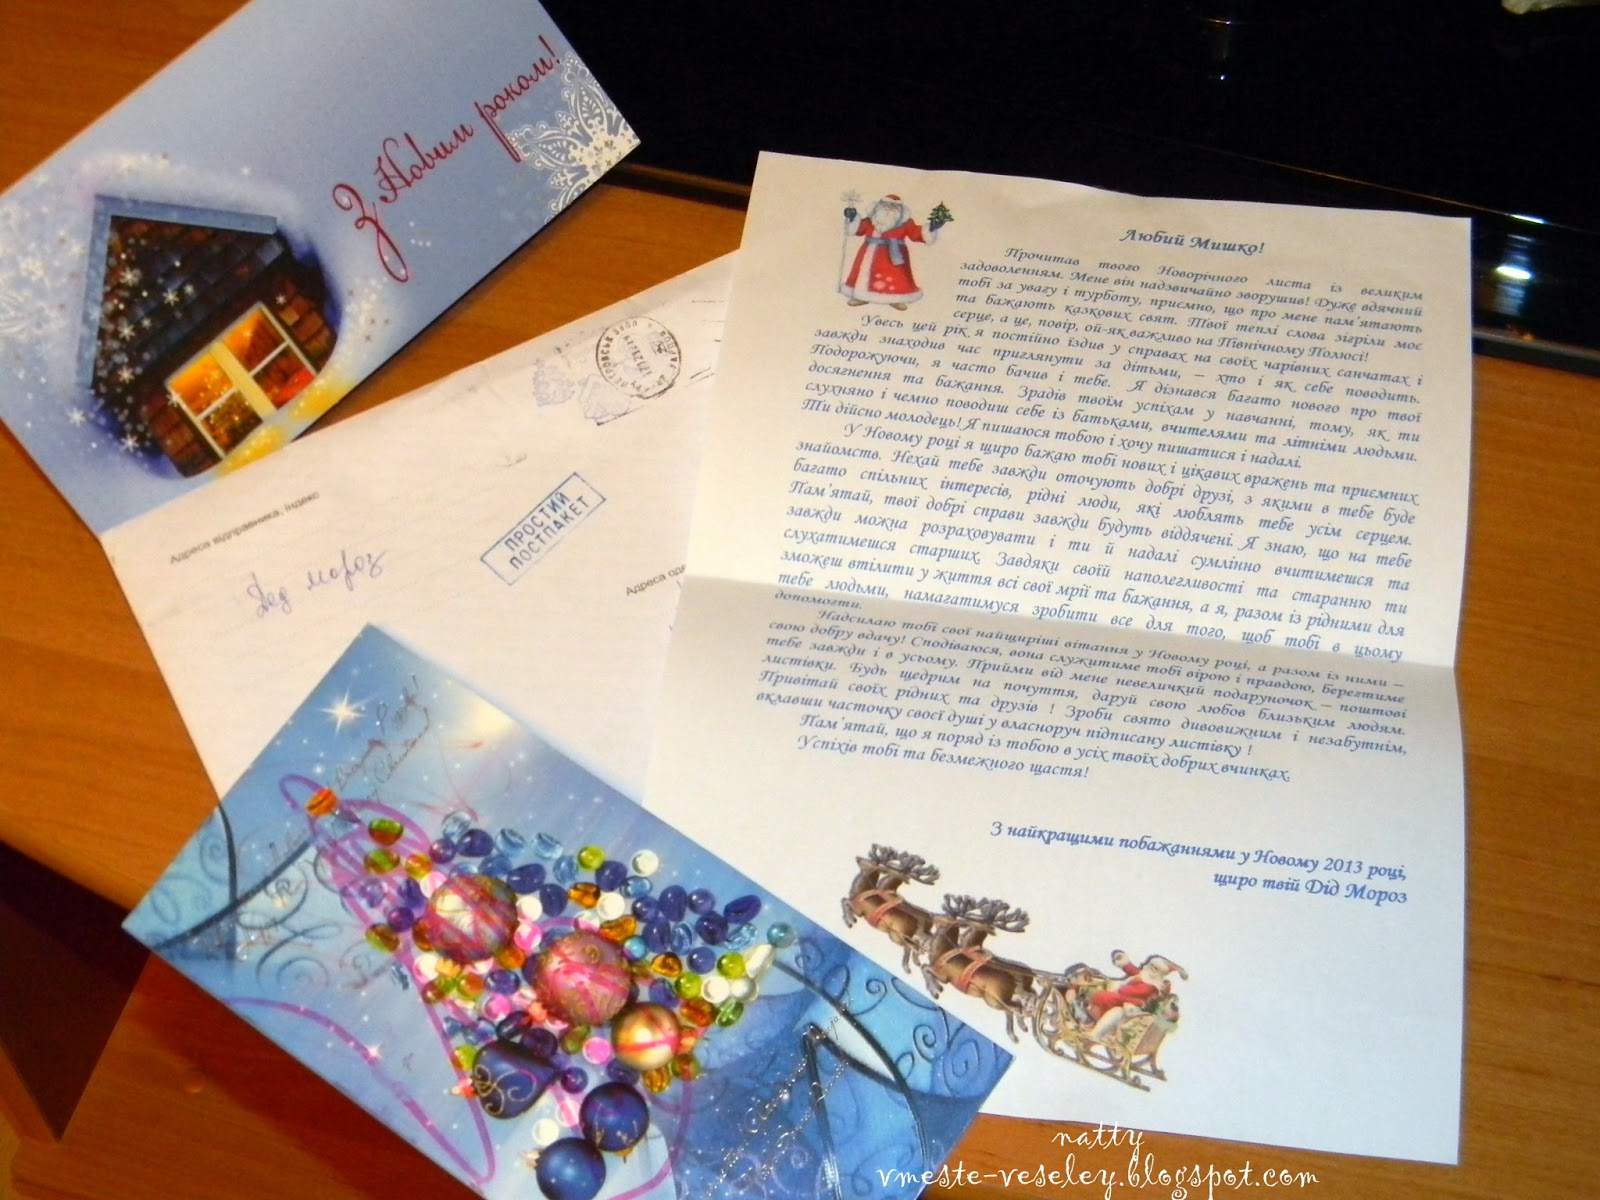 З Новим роком!
Любий Мишко!
Прочитав твого Новорічного листа із великим
задоволенням. Мене він надзвичайно зворушив! Дуже вдячний
тобі за увагу і турботу, приємно, що про мене пам'ятають
та бажають казкових свят. Твої теплі слова зігріли моє
серце, а це, повір, ой-як важливо на Північному Полюсі!
Увесь цей рік я постійно їздив у справах на своїх чарівних санчатах і
завжди знаходив час приглянути за дітьми, – хто і як себе поводить.
Подорожуючи, я часто бачив і тебе. Я дізнався багато нового про твої
досягнення та бажання. Зрадів твоїм успіхам у навчанні, тому, як ти
слухняно і чемно поводиш себе із батьками, вчителями та літніми людьми.
Ти дійсно молодець! Я пишаюся тобою і хочу пишатися і надалі.
У Новому році я щиро бажаю тобі нових і цікавих вражень та приємних
знайомств. Нехай тебе завжди оточують добрі друзі, з якими в тебе буде
багато спільних інтересів, рідні люди, які люблять тебе усім серцем.
Пам'ятай, твої добрі справи завжди будуть віддячені. Я знаю, що на тебе
завжди можна розраховувати і ти й надалі сумлінно вчитимешся та
слухатимешся старших. Завдяки своїй наполегливості та старанню ти
зможеш втілити у життя всі свої мрії та бажання, а я, разом із рідними для
тебе людьми, намагатимуся зробити все для того, щоб тобі в цьому
допомогти.
Надсилаю тобі свої найщиріші вітання у Новому році, а разом із ними –
свою добру вдачу! Сподіваюся, вона служитиме тобі вірою і правдою, берегтиме
тебе завжди і в усьому. Прийми від мене невеличкий подаруночок – поштові
листівки. Будь щедрим на почуття, даруй свою любов близьким людям.
Привітай своїх рідних та друзів ! Зроби свято дивовижним і незабутнім,
вклавши часточку своєї душі у власноруч підписану листівку !
Пам'ятай, що я поряд із тобою в усіх твоїх добрих вчинках.
Успіхів тобі та безмежного щастя!
З найкращими побажаннями у Новому 2013 році,
щиро твій Дід Мороз
Адреса відправника, індекс
Дед мороз
ПРОСТИЙ
ПОСТПАКЕТ
Адреса
natty
vmeste-veseley.blogspot.com